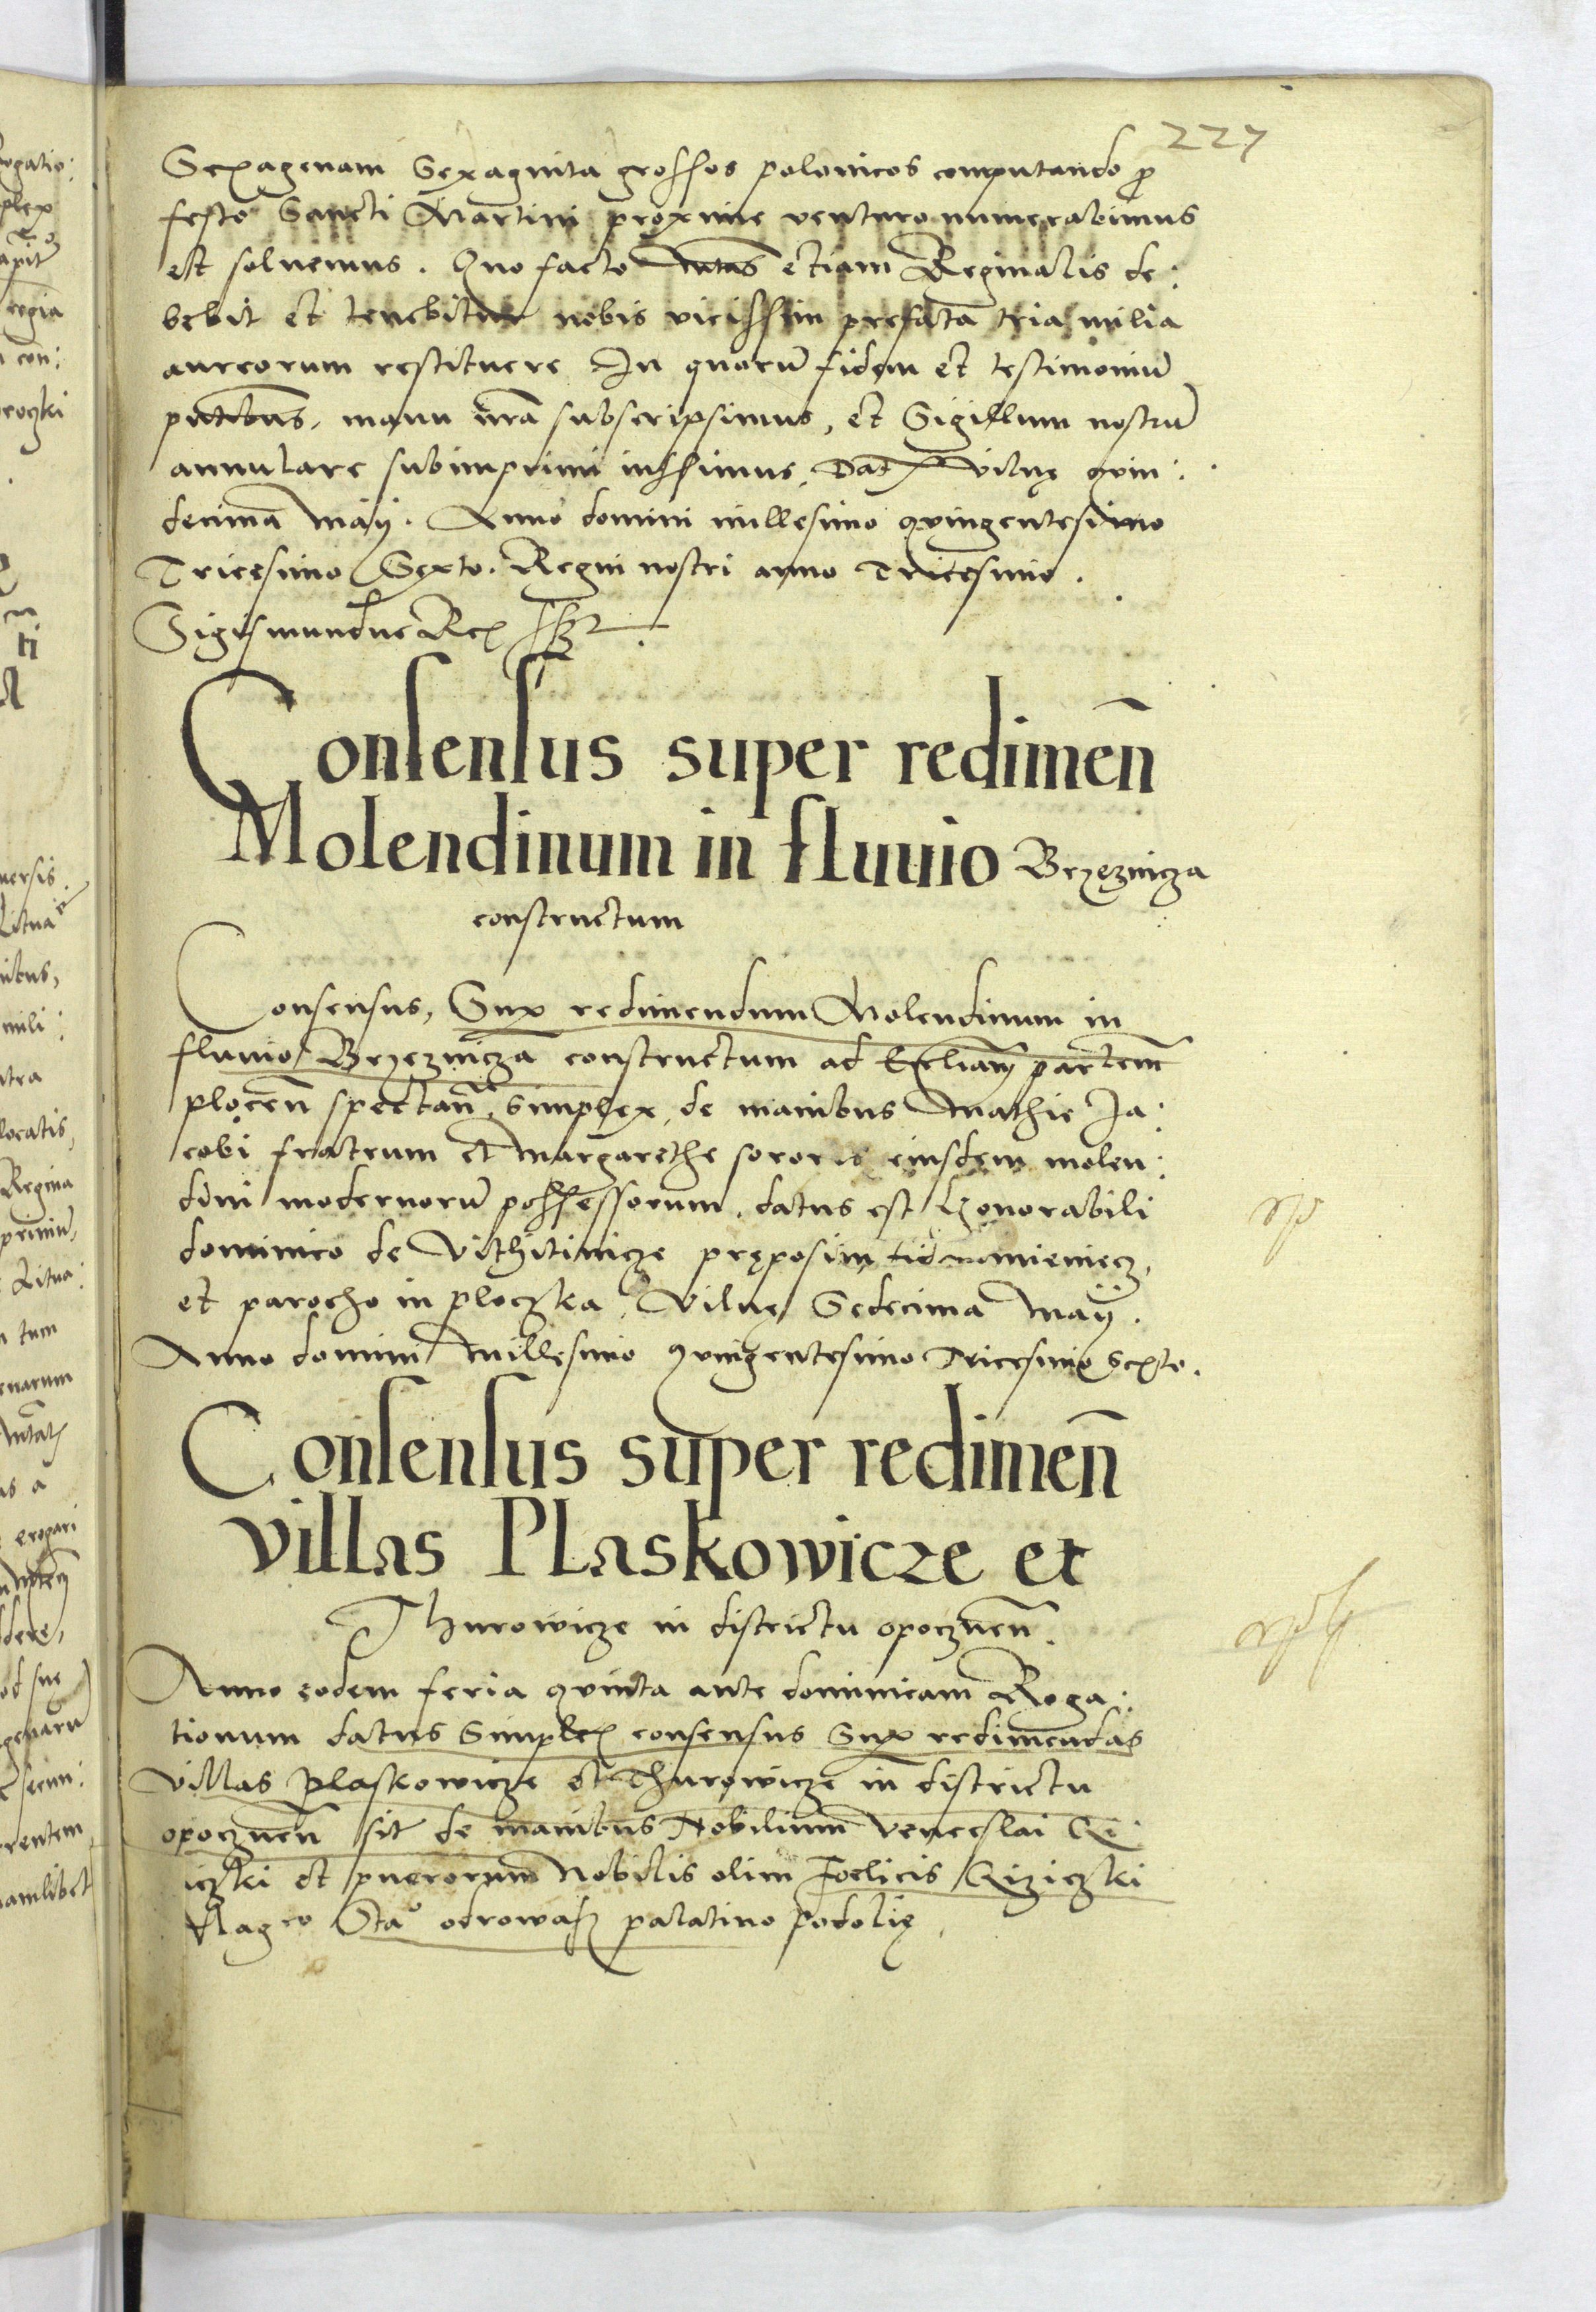 227
Sexagenam Sexaginta grossos polonicos computando p̄
festo Sancti Martini proxime venturo numerabimus
est soluemus. Quo facto Mtas etiam Reginalis de:
bebit et tenebitur nobis vicissim prefata tria milia
aureorum restituere In quorū fidem et testimoniū
pntibus, manu nr̄a subscripsimus, et Sigillum nostrū
annulare subimprimi iussimus, Dat Vilnę quin:
decima Maÿ. Anno domini millesimo quingentesimo
Tricesimo Sexto. Regni nostri anno Tricesimo.
Sigismundus Rex
Consensus super redimen̄
Molendinum in fluuio Brzeznicza
constructum
Consensus, Sup redimendum Molendinum in
fluuio Brzeznicza constructum ad Eccliam partem
plocen̄ spectan̄, simplex, de manibus Mathie Ja:
cobi fratrum et Margarethe sororis eiusdem molen:
dini modernorū possessorum, datus est honorabili
dominico de Vithitinicze pręposim
et parocho in ploczka, Vilnę Sedecima Maÿ.
Anno domini Millesimo quingentesimo Tricesimo Sexto.
Consensus super redimen̄
villas Plaskowicze et
Thurowicze in districtu opocznen̄.
Anno eodem feria quinta ante dominicam Roga:
tionum datus Simplex consensus Sup redimendas
villas Plaskowicze et Thurowicze in districtu
opocznen̄ sit de manibus Nobilium Venceslai
iczki et puerorum Nobilis olim Foelicis Qiziczki
Mag͞co Sta⁰ odrowasz palatino Podolię.